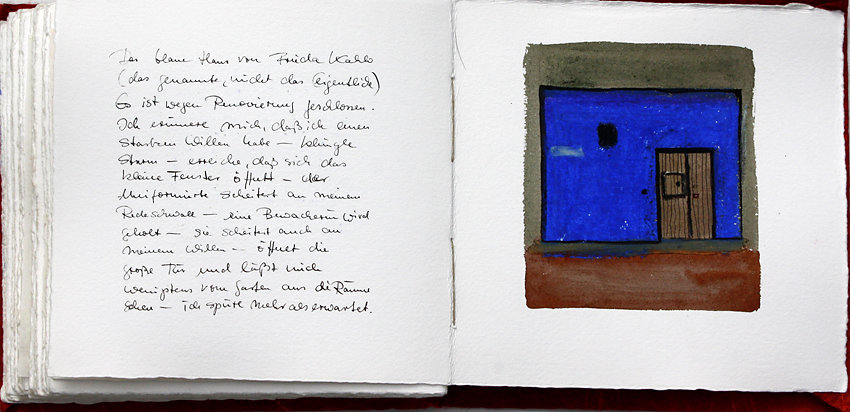 Das blaue Haus von Frieda Kahlo
(das genannte, nicht das eigentliche)
Es ist wegen Renovierung geschlossen.
Ich erinnere mich, daß ich einen
starken Willen habe – klingle
Sturm – erreiche, daß sich das
kleine Fenster öffnet – der
Uniformierte scheitert an meinem
Redeschwall – eine Bewacherin wird
geholt – sie scheitert auch an
meinem Willen – öffnet die
große Tür und läßt mich
wenigstens vom Garten aus die Räume
sehen – ich spüre mehr als erwartet.